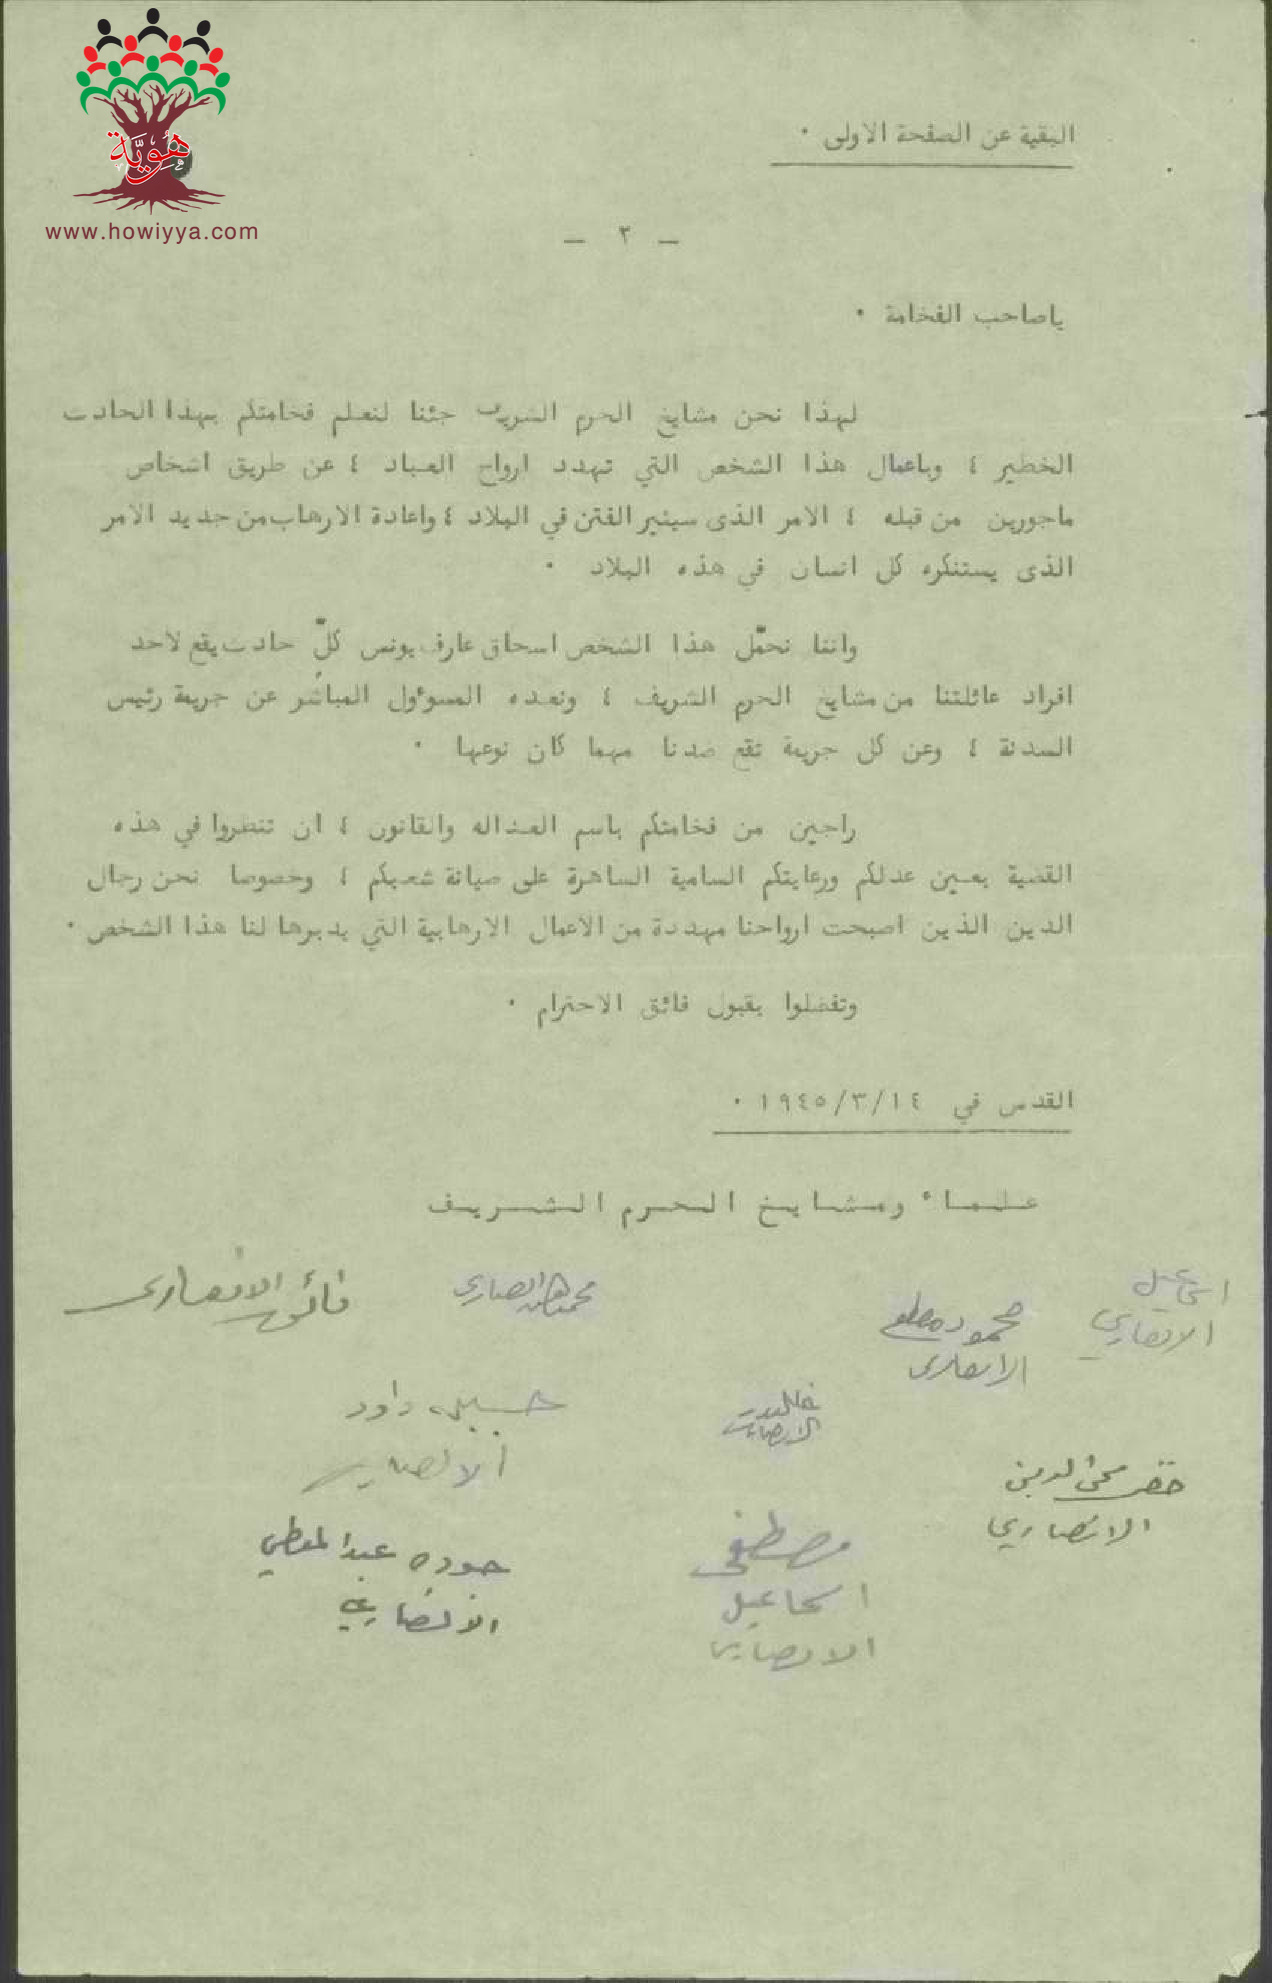 هُويَّة
www.howiyya.com
البقية عن الصفحة الاولى .
— ٢ —
ياصاحب الفخامة .
لهذا نحن مشايخ الحرم الشريف جئنا لنعلم فخامتكم بهذا الحادث
الخطير ، وباعمال هذا الشخص التي تهدد ارواح العباد ، عن طريق اشخاص
ماجورين من قبله ، الامر الذى سيثير الفتن في البلاد ، واعادة الارهاب من جديد الامر
الذى يستنكره كل انسان في هذه البلاد .
واننا نحمّل هذا الشخص اسحاق عارف يونس كلّ حادث يقع لاحد
افراد عائلتنا من مشايخ الحرم الشريف ، ونعده المسوءول المباشر عن جريمة رئيس
السدنة ، وعن كل جريمة تقع ضدنا مهما كان نوعها .
راجين من فخامتكم باسم العداله والقانون ، ان تنظروا في هذه
القضية بعين عدلكم ورعايتكم السامية الساهرة على صيانة شعبكم ، وخصوصا نحن رجال
الدين الذين اصبحت ارواحنا مهددة من الاعمال الارهابية التي يدبرها لنا هذا الشخص .
وتفضلوا بقبول فائق الاحترام .
القدس في ١٩٤٥/٣/١٤ .
علماء ومشايخ الحرم الشريف
اسماعيل
الانصاري
محمود
الانصارى
الانصاري
فائق الانصارى
داود
الانصاري
محي الدين
الانصاري
مصطفى
اسماعيل
الانصاري
جوده عبد المعطي
الانصاري